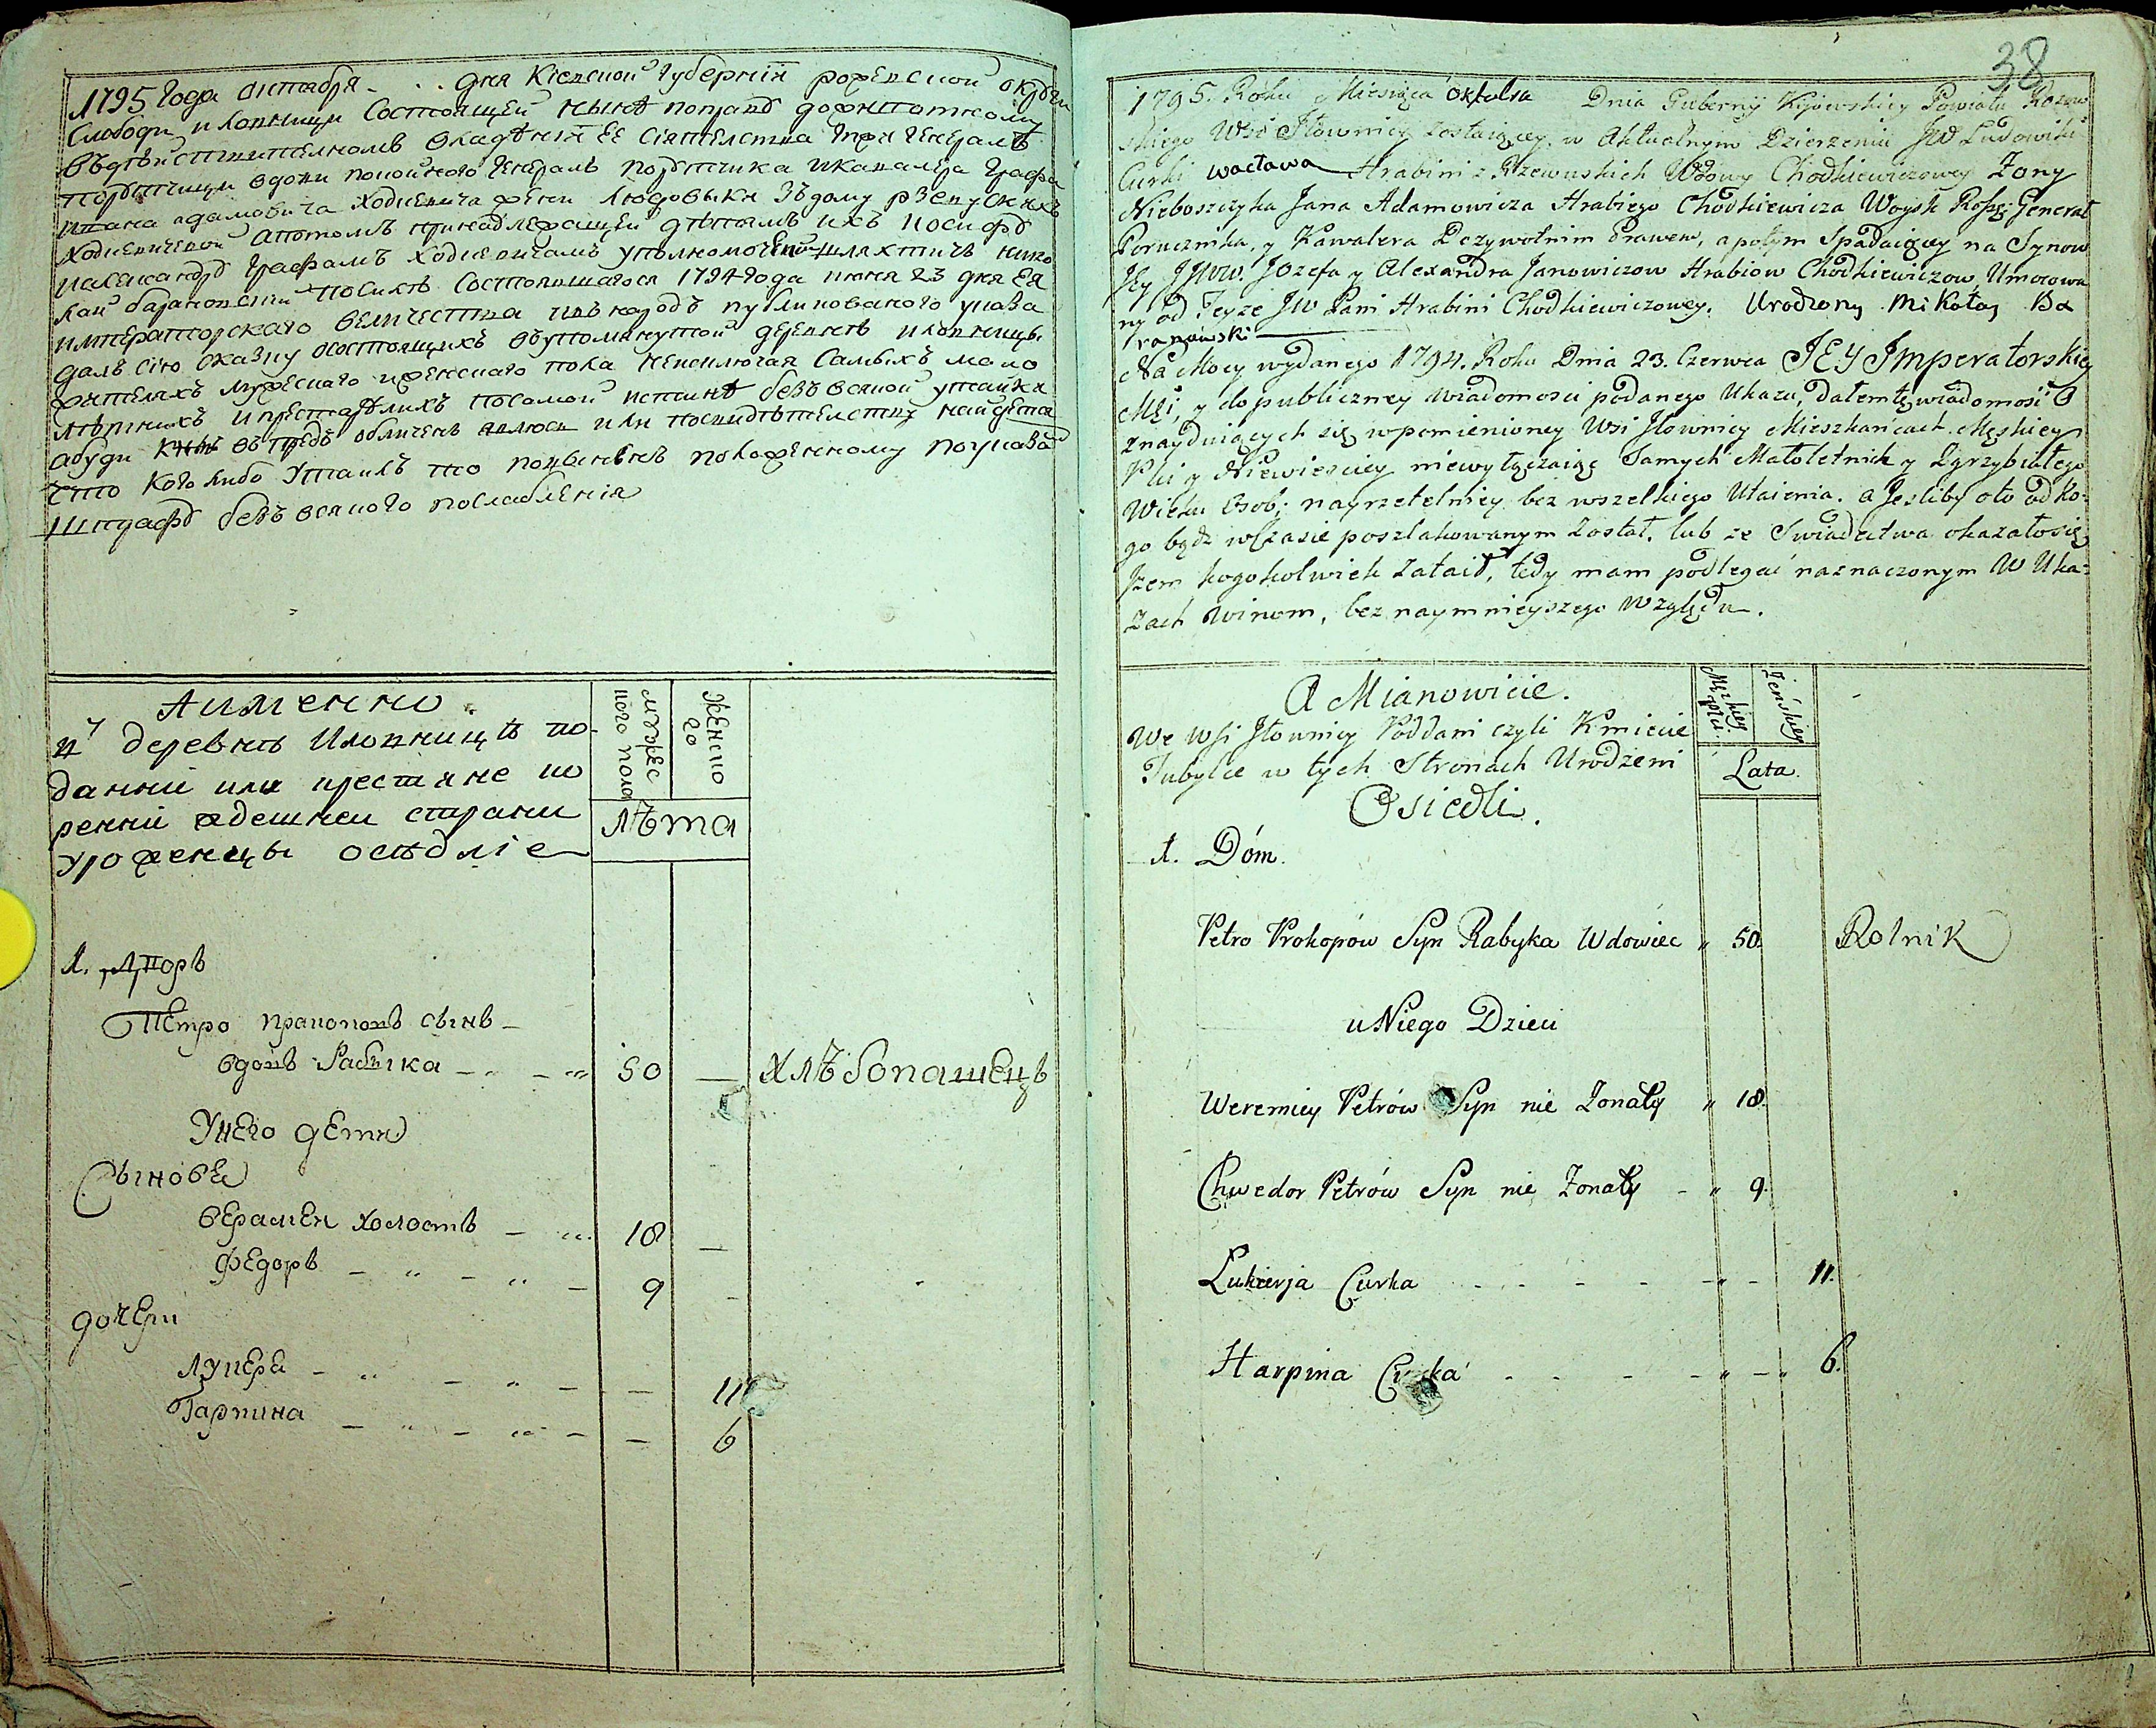 1795 года октября - . . дня Киевской губернiи роженской округи
слободы иловници состоящей ныне поправѣ дожитотному
въдѣйствителномъ владѣнiи ее сiятелства гпжи генералъ
порутчици вдови покойного генералъ порутчика икавалера графа
ивана адамовича ходкевича жени людовыки зъдому рзевускихъ
ходкевичевой апотомъ принадлежащей дѣтямъ ихъ иосифѣ
иалександрѣ графамъ ходкевичамъ уполномоченій шляхтичъ нико
лай барановскiй посилѣ состоявшагося 1794 года июня 23 дня Ея
императорскаго величества інънародъ публикованого указа
далъ сiю сказку осостоящихъ въупомянутой деревнѣ иловницы
жителяхъ мужеского иженского пола неисключая самыхъ мало
лѣтнихъ ипрестарѣлихъ посамой истинѣ безъ всякой утайки
абуди впредь обличенъ явлюсь или посвидѣтелству найдется
что кого либо утаилъ то повиненъ положенному поуказа
штрафѣ безъ всякого послабленiя
Аименно.
в деревнѣ Иловницѣ по-
данни или крестяне ко
ренни здешнеи старани
уроженцы осѣдліе
мужес
кого пола
женско
го
лѣта
1. Дворъ
Петро Прокоповъ сынъ -
вдовъ Рабыка - " - " 50 — хлѣбопашецъ
Унего дети
Сыновея
Верамен холостъ - " 18 —
Федоръ - " - " - 9 -
дочери
Лукеря - " - " - — 11
Гарпина - " - " - — 6
38
1795. Roku Miesiąca Oktobra Dnia Gubernij Kijowskiey Powiatu Rozew
skiego Wsi Iłownicy zostaiącey w Aktualnym Dzierzeniu JW Ludowiki
Curki wacława Hrabini z Rzewuskich Wdowy Chodkiewiczowey Zony
Nieboszczyka Jana Adamowicza Hrabiego Chodkiewicza Woysk Rossy: Generał
Porucznika, y Kawalera Dozywotnim Prawem, a potym Spadaiącey na Synow
Jey JJWW. Jozefa y Alexandra Janowiczow Hrabiow Chodkiewiczow, Umocowa
ny od Teyze JW Pani Hrabini Chodkiewiczowey. Urodzony Mikołay Ba
ranowski
Na Mocy wydanego 1794. Roku Dnia 23. Czerwca JEY Imperatorskiey
Mci, y do publiczney wiadomosci podanego Ukazu, dałem tę wiadomość O
znayduiących się w pomienioney Wsi Iłownicy Mieszkańcach Męskiey
Płci y Niewiesciey niewyłączaiąc Samych Małoletnich y Zgrzybiałego
Wieku Osob; nayrzetelniey bez wszelkiego Utaienia. a Jesliby oto od Ko-
go bądz w Czasie poszlakowanym został. lub ze Swiadectwa okazało się
Jzem kogokolwiek Zataił, tedy mam podlegać naznaczonym W Uka-
zach winom, bez naymnieyszego Względu.
A Mianowicie.
We Wsi Iłownicy Poddani czyli Kmiecie
Tubylce w tych Stronach Urodzeni
Osiedli.
Męzkiey
płci.
Zeńskiey
Lata.
1. Dóm.
Petro Prokopow Syn Rabyka Wdowiec " 50. Rolnik
u Niego Dzieci
Weremiey Petrów Syn nie Zonaty " 18.
Chwedor Petrów Syn nie Zonaty - " 9.
Lukierja Curka - - - - - " - 11.
Harpina Curka - - - - " - " 6.